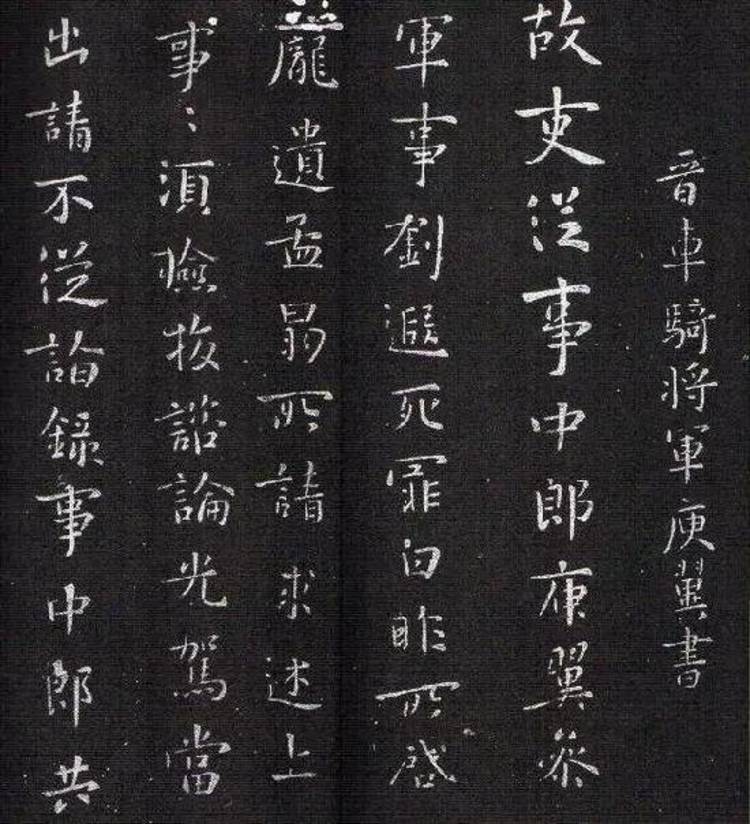 晉車騎将軍庾翼書
故吏從事中郎庾翼參
軍事劉遐死罪白昨所啓
龐遺孟所請求述上
事〻須檢校諮論光駕當
出請不從詣錄事中郎共